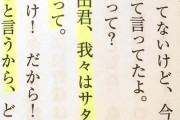 てないけど、今
て言ってたよ。
って?
田君、我々はサタ
って。
け! だから!
と言うから、ど